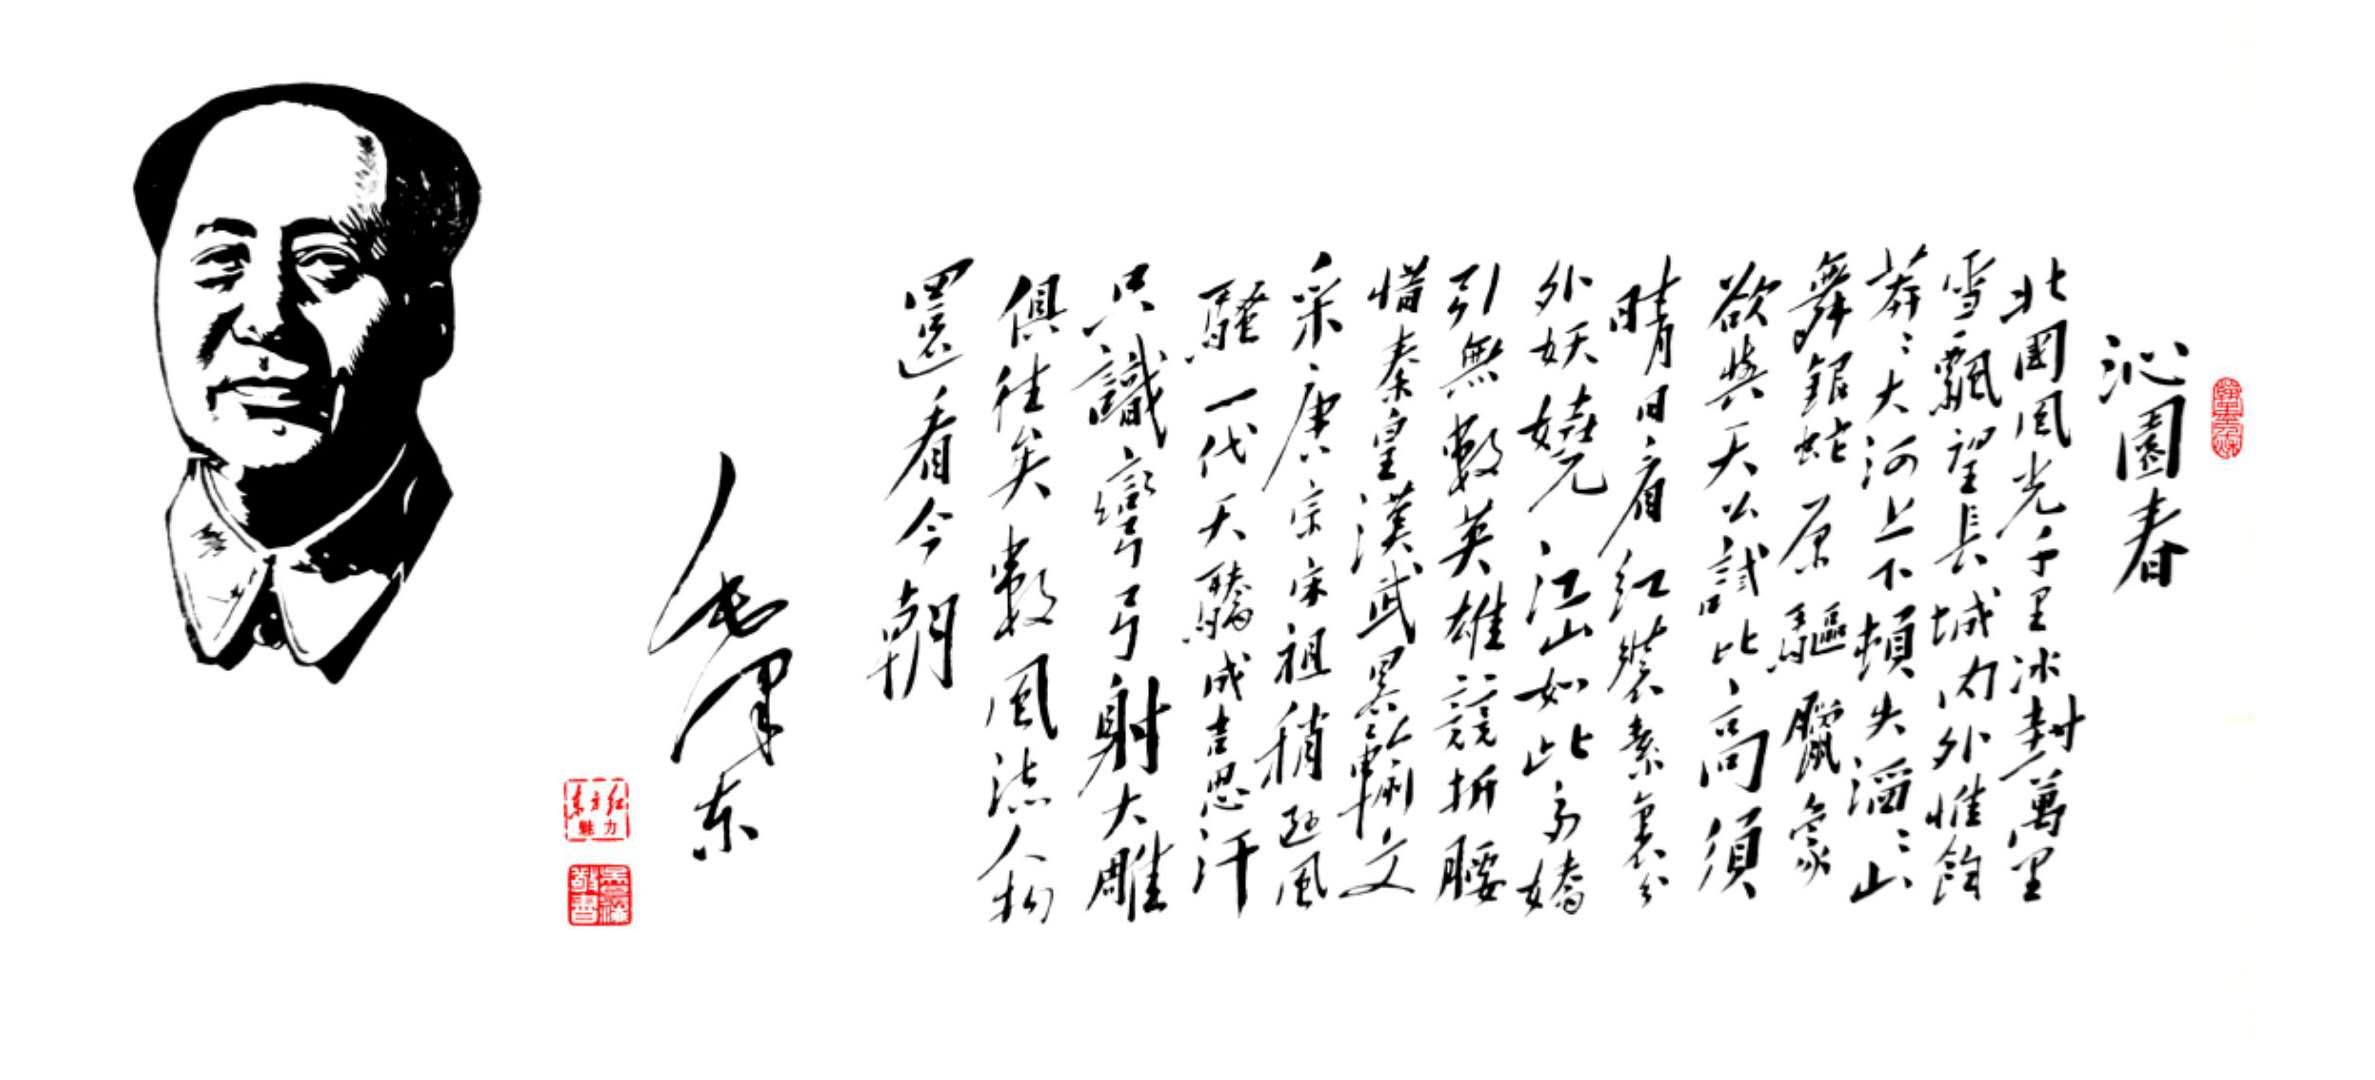 沁園春
北國風光千里冰封萬里
雪飄望長城內外惟餘
莽〻大河上下頓失滔〻山
舞銀蛇原驅臘象
欲與天公試比高須
晴日看紅裝素裹分
外妖嬈江山如此多嬌
引無數英雄競折腰
惜秦皇漢武畧輸文
采唐宗宋祖稍遜風
騷一代天驕成吉思汗
只識彎弓射大雕
俱往矣數風流人物
還看今朝
毛澤东
东方红
魅力